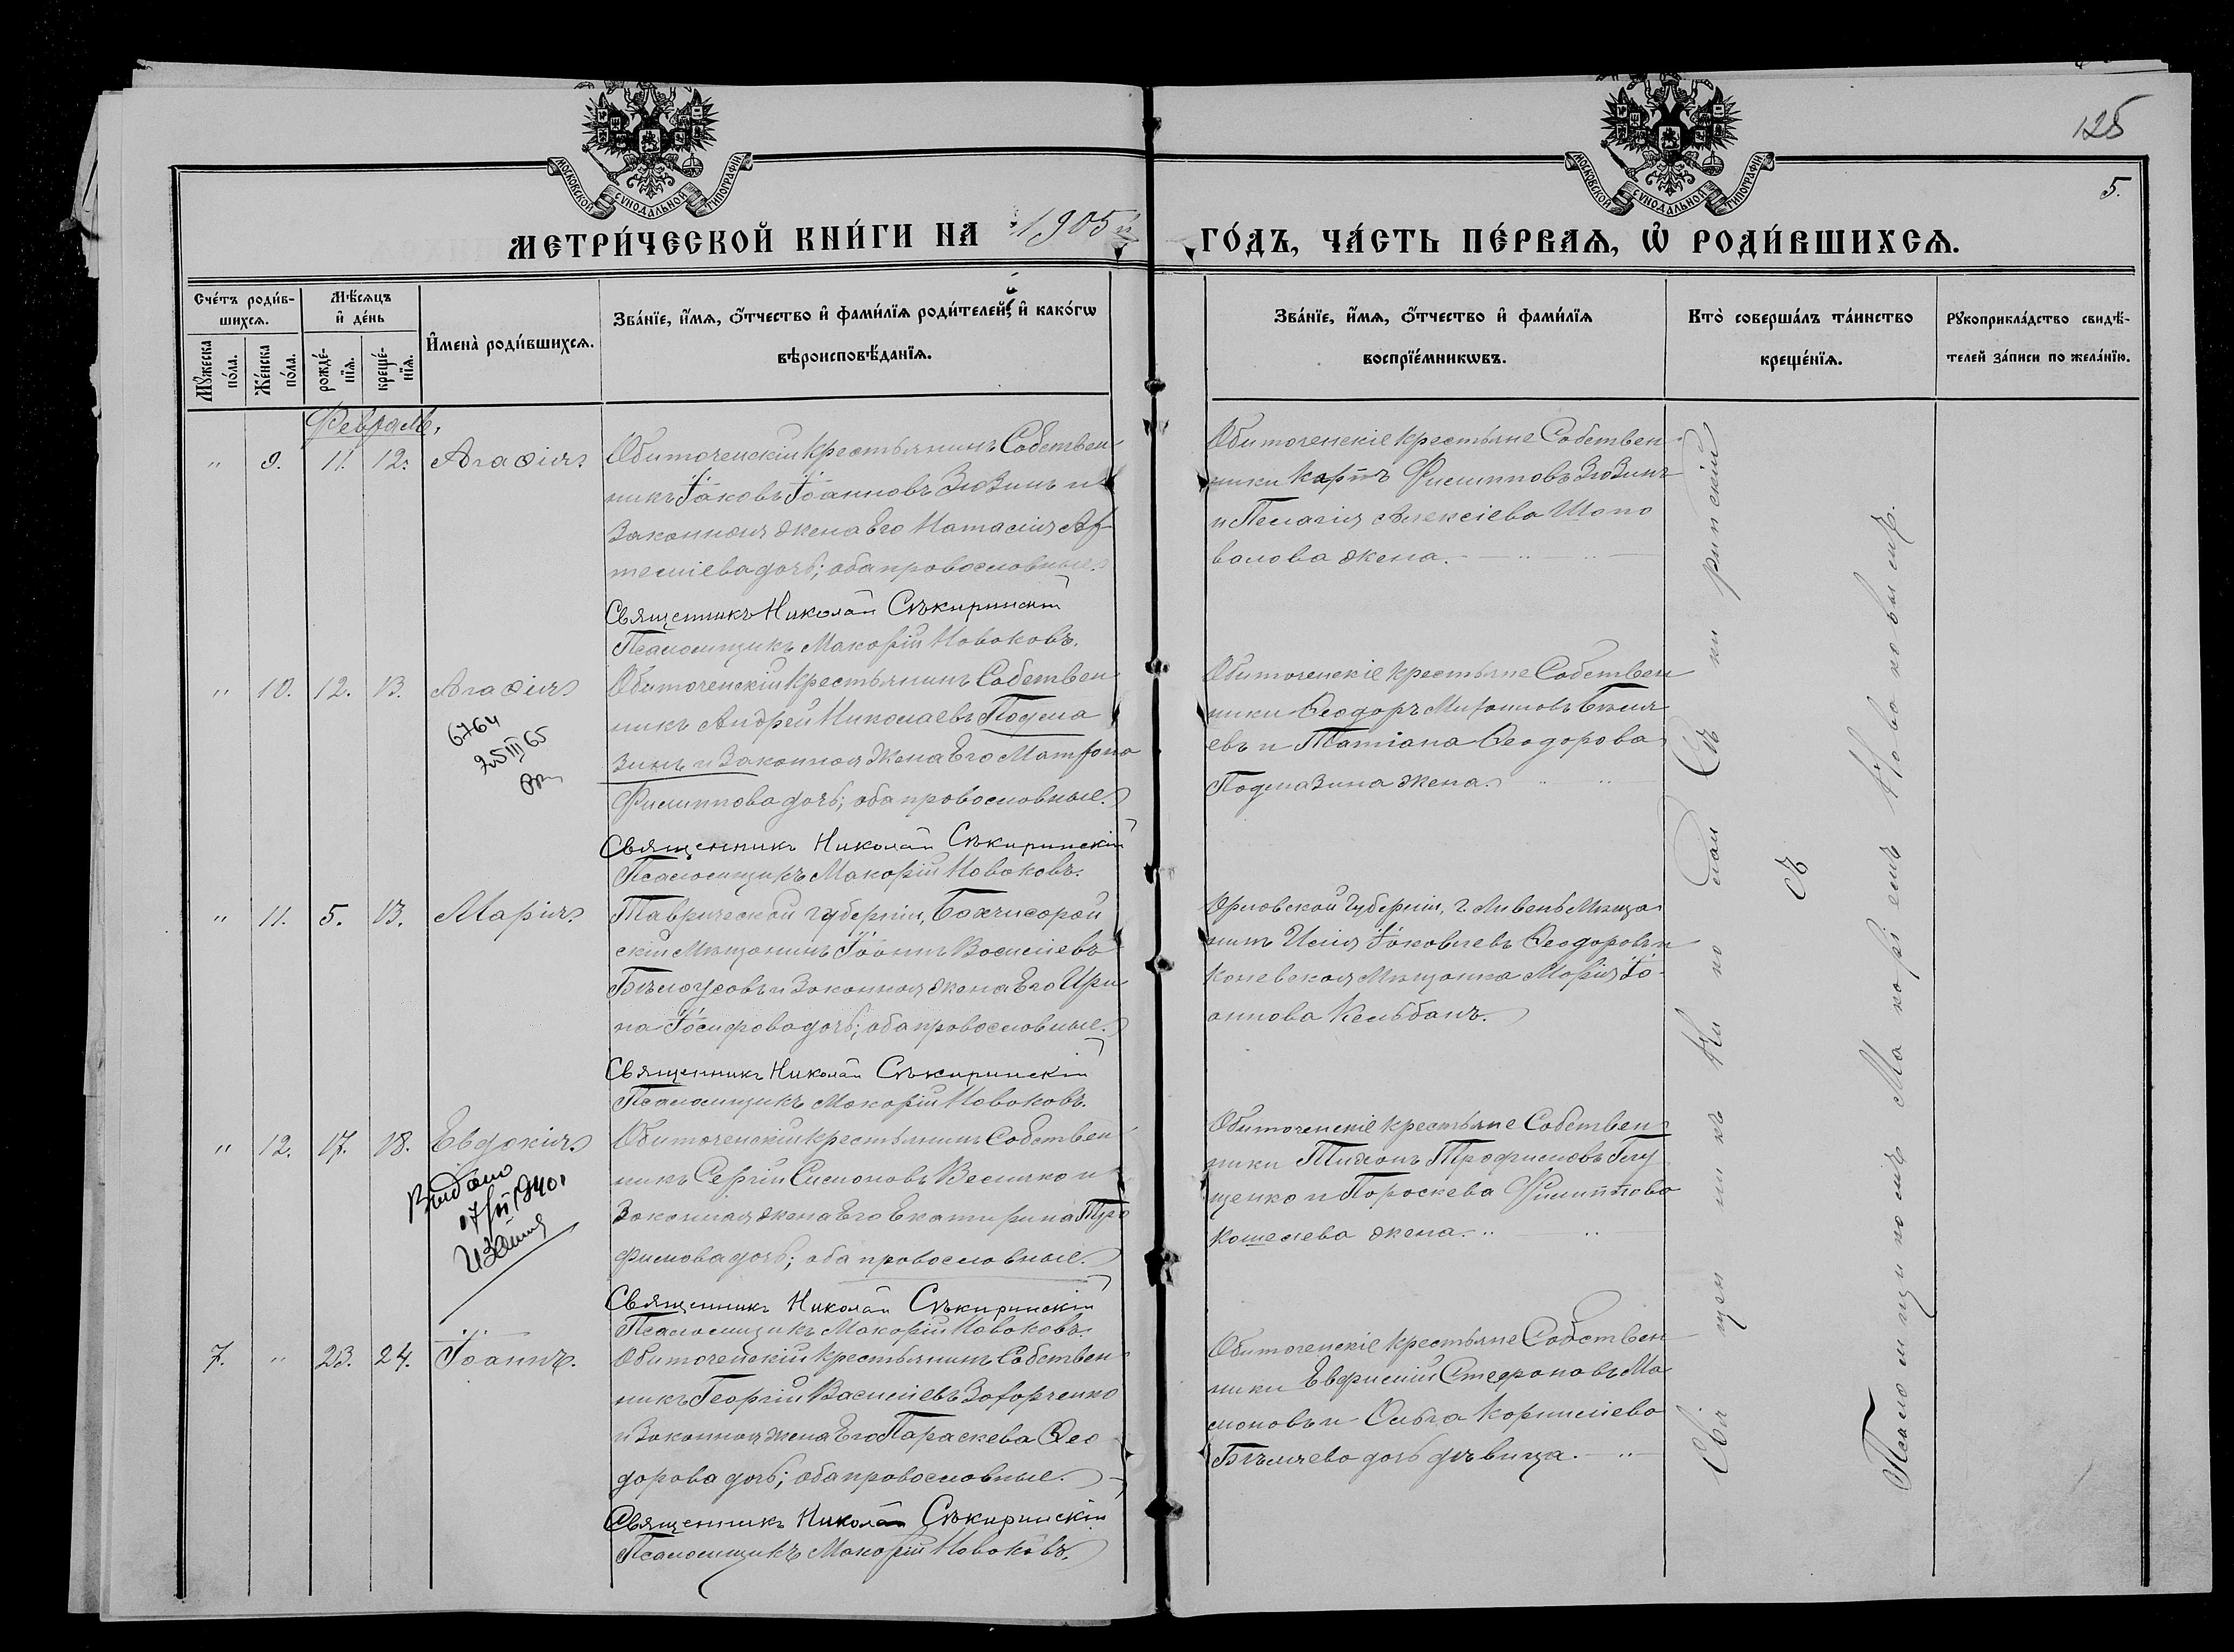 125
5.
МОСКОВСКОЙ СѴНОДАЛЬНОЙ ТИПОГРАФІИ
МОСКОВСКОЙ СѴНОДАЛЬНОЙ ТИПОГРАФІИ
МЕТРИ́ЧЕСКОЙ КНИ́ГИ НА 1905й ГО́ДЪ, ЧА́СТЬ ПЕ́РВАЯ, Ѡ҆ РОДИ́ВШИХСЯ.
Сче́тъ роди́в-
шихся.
Мꙋ́жеска по́ла.
Же́нска по́ла.
Мѣ́сяцъ
и҆ де́нь
рожде́-
нїя.
креще́-
нїя.
И҆мена̀ роди́вшихся.
Зва́нїе, и҆́мя, ѻ҆́тчество и҆ фами́лїя роди́телей, и҆ како́гѡ
вѣроисповѣ́данїя.
Зва́нїе, и҆́мя, ѻ҆́тчество и҆ фами́лїя
воспрїе́мникѡвъ.
Кто̀ соверша́лъ та́инство
креще́нїя.
Рꙋкоприкла́дство свидѣ́-
телей за́писи по жела́нїю.
Февраль.
" 9. 11. 12. Агаѳія.
Обиточенскій крестьянинъ Собствен
никъ Іаковъ Іоанновъ Зюзинъ и
Законная жена Его Наталія Ар-
теміева дочь; оба православные.
Священникъ Николай Сѣкиринскій
Псаломщикъ Макарій Новаковъ.
Обиточенскіе крестьяне Собствен
ники Карпъ Филипповъ Зюзинъ
и Пелагія Алексіева Шапо
валова жена.
" 10. 12. 13. Агаѳія
6764
25 III 65
Обиточенскій крестьянинъ Собствен
никъ Андрей Николаевъ Подма
зинъ и Законная жена Его Матрона
Филиппова дочь; оба православные.
Священникъ Николай Сѣкиринскій
Псаломщикъ Макарій Новаковъ.
Обиточенскіе крестьяне Собствен
ники Ѳеодоръ Бѣля
евъ и Татіана Ѳеодорова
Подмазина жена.
" 11. 5. 13. Марія
Таврической губерніи, Бахчисарай
скій Мѣщанинъ Іоаннъ Василіевъ
Бѣлоусовъ и Законная жена Его Ири
на Іосифова дочь; оба православные.
Священникъ Николай Сѣкиринскій
Псаломщикъ Макарій Новаковъ.
Орловской Губерніи, г. Ливенъ Мѣща
нинъ Илія Іаковлевъ Ѳеодоровъ и
Каневская Мѣщанка Марія Іо-
аннова Кельбанъ.
" 12. 17. 18. Евдокія
Видано
17/VI 1940.
Обиточенскій крестьянинъ Собствен
никъ Сергій Симоновъ Величко и
Законная жена Его Екатирина Тро
фимова дочь; оба православные.
Священникъ Николай Сѣкиринскій
Псаломщикъ Макарій Новаковъ.
Обиточенскіе крестьяне Собствен
ники Тихонъ Трофимовъ Глу
щенко и Параскева Филиппова
Кошелева жена.
7. " 23. 24. Іоаннъ.
Обиточенскій крестьянинъ Собствен
никъ Георгій Василіевъ Захорченко
и Законная жена Его Параскева Ѳео
дорова дочь; оба православные.
Священникъ Николай Сѣкиринскій
Псаломщикъ Макарій Новаковъ.
Обиточенскіе крестьяне Собствен
ники Евфимій Стефановъ Ма
моновъ и Ольга Корниліева
Бѣляева дочь дѣвица.
Священникъ Николай Сѣкиринскій
съ
Псаломщикомъ Макаріемъ Новаковымъ.